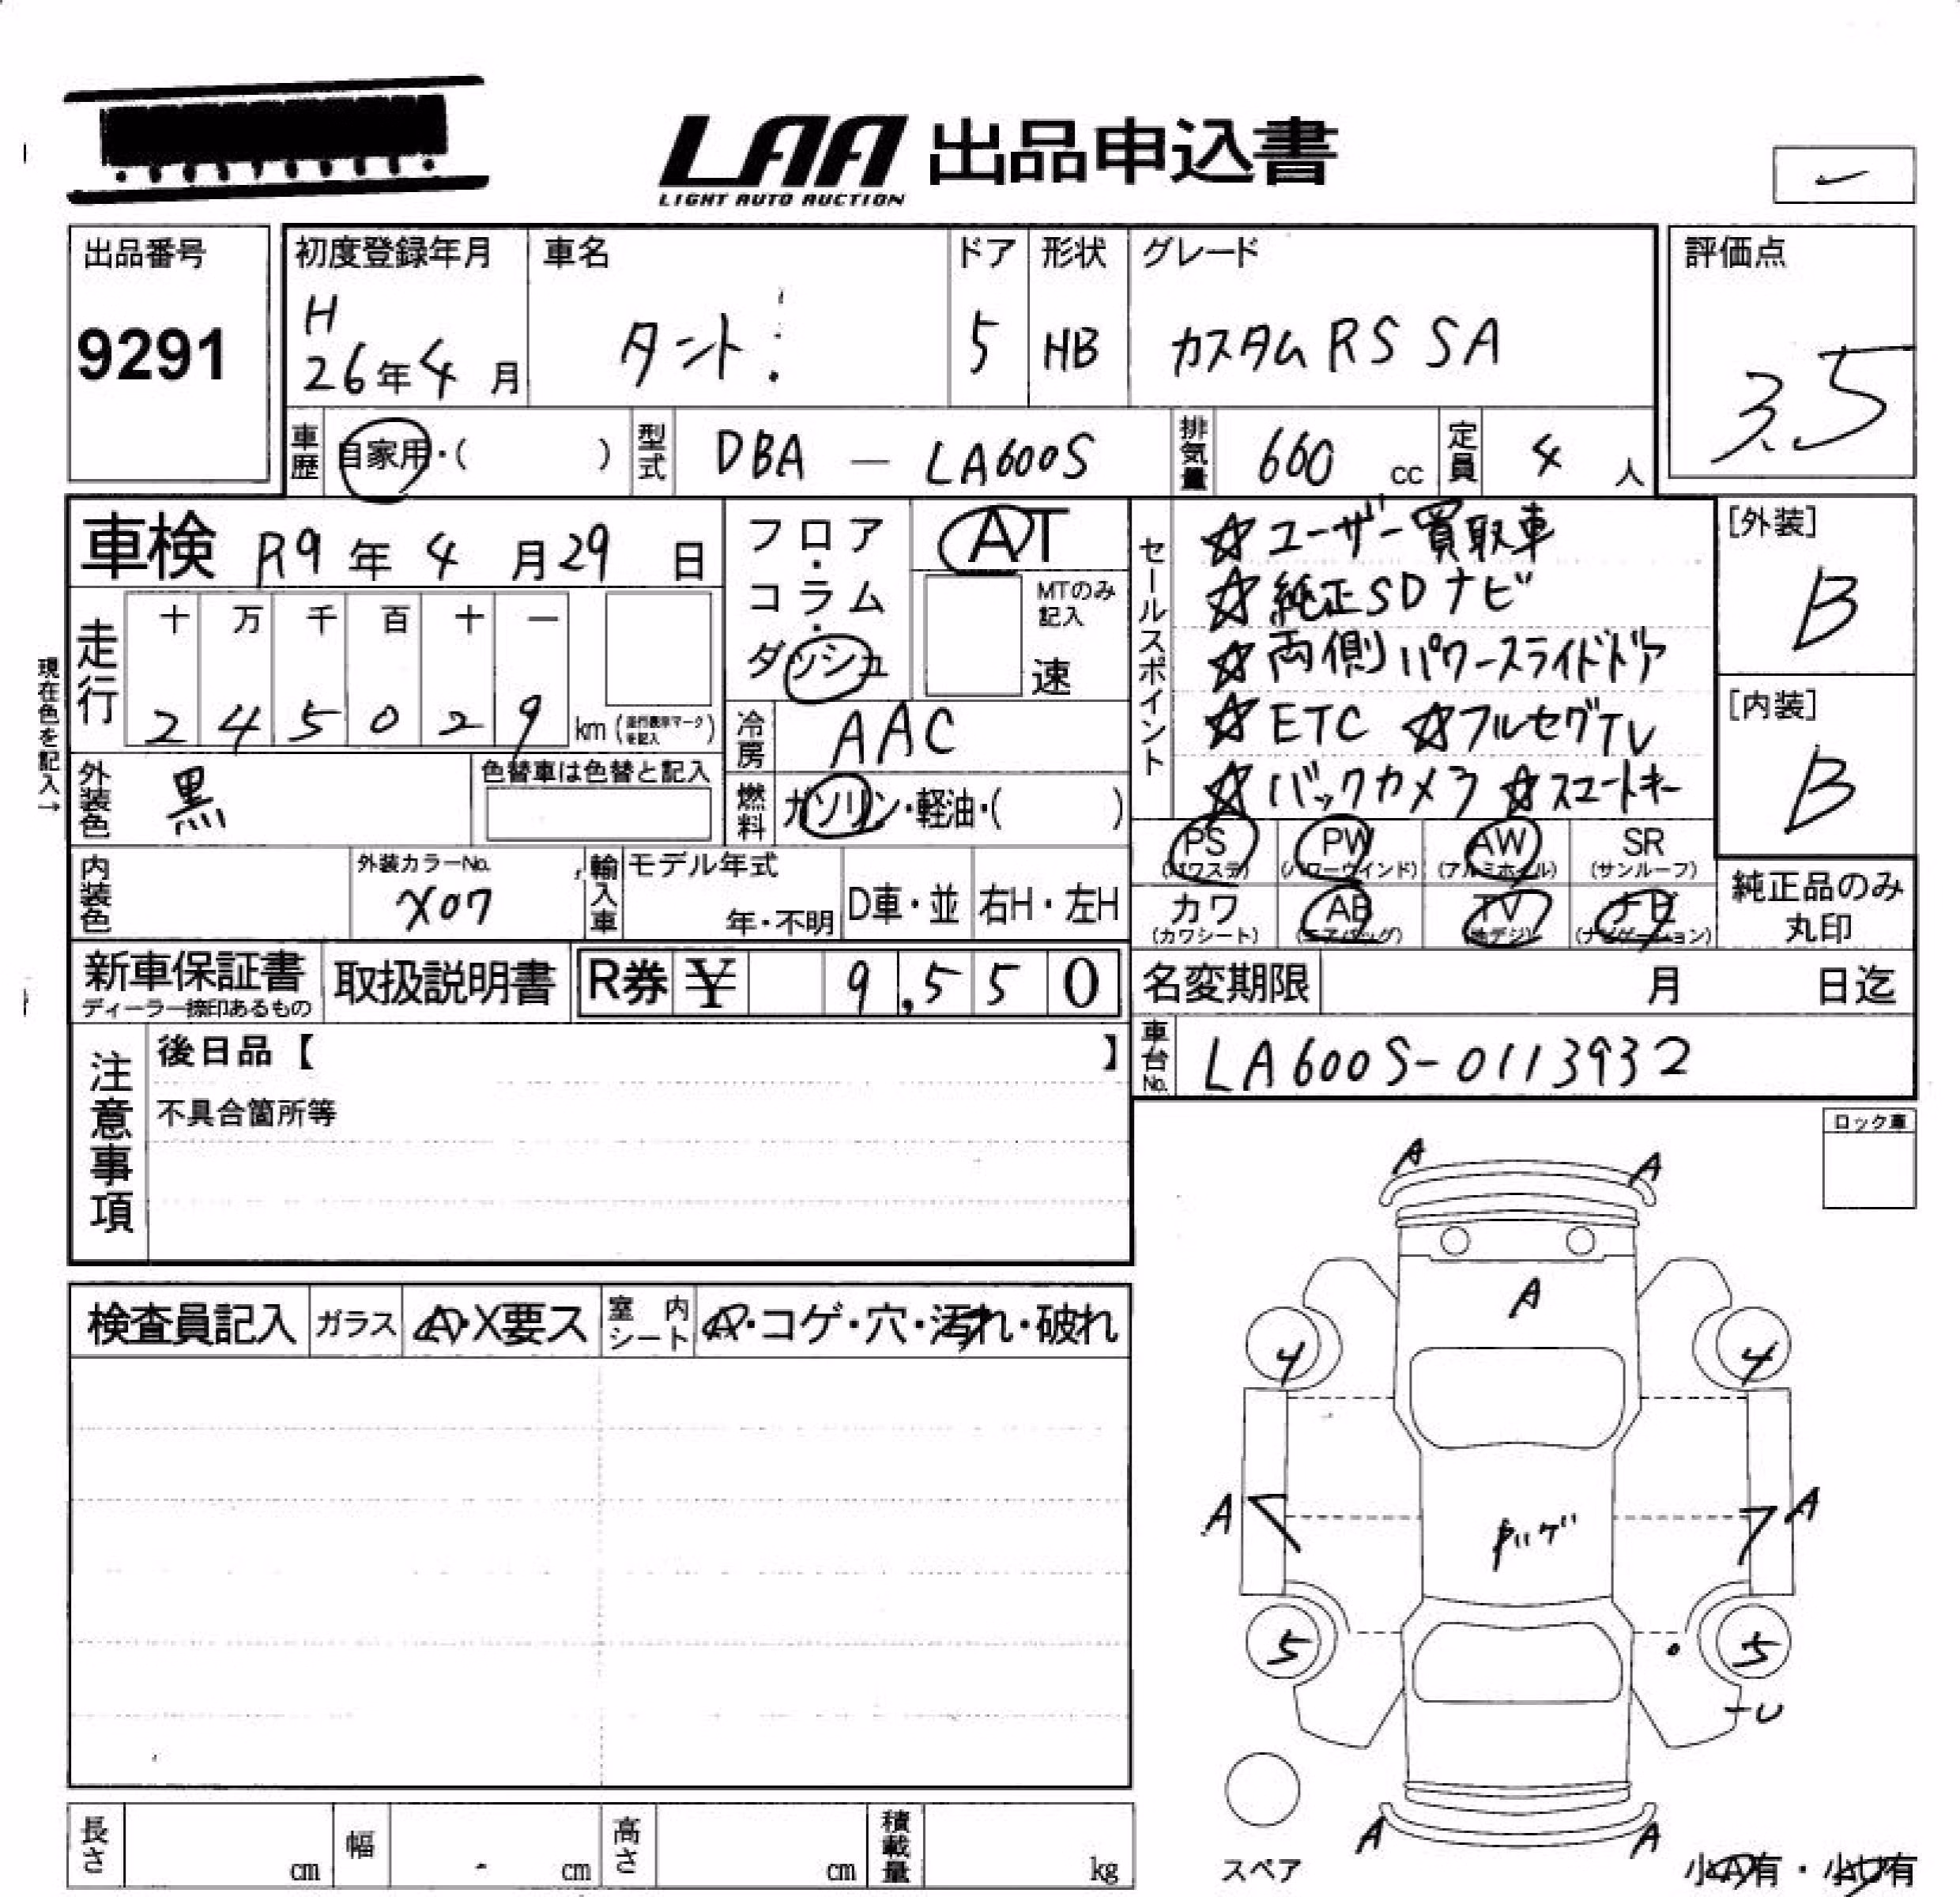 LAA 出品申込書
LIGHT AUTO AUCTION
出品番号
9291
初度登録年月
H
26年4月
車名
タント
ドア
5
形状
HB
グレード
カスタム RS SA
評価点
3.5
車歴
自家用・( )
型式
DBA — LA600S
排気量
660 cc
定員
4 人
車検 R9年4月29日
フロア・コラム・ダッシュ
AT
MTのみ記入
速
走行
十 万 千 百 十 一
2 4 5 0 2 9 km
現在色を記入→
冷房
AAC
外装色
黒
色替車は色替と記入
燃料
ガソリン・軽油・( )
内装色
外装カラーNo.
X07
輸入車
モデル年式
年・不明
D車・並
右H・左H
セールスポイント
☆ユーザー買取車
☆純正SDナビ
☆両側パワースライドドア
☆ETC ☆フルセグTV
☆バックカメラ ☆スマートキー
[外装]
B
[内装]
B
PS
(パワステ)
PW
(パワーウインド)
AW
(アルミホイル)
SR
(サンルーフ)
カワ
(カワシート)
AB
(エアバッグ)
TV
(地デジ)
ナビ
(ナビゲーション)
純正品のみ
丸印
新車保証書
ディーラー捺印あるもの
取扱説明書
R券 ¥ 9,550
名変期限 月 日迄
車台No.
LA600S-0113932
注意事項
後日品【 】
不具合箇所等
ロック車
検査員記入
ガラス
A・X要ス
室内シート
A・コゲ・穴・汚れ・破れ
A A
A
4 4
A A
5 5
U
A A
スペア
小A有・小U有
長さ cm
幅 cm
高さ cm
積載量 kg